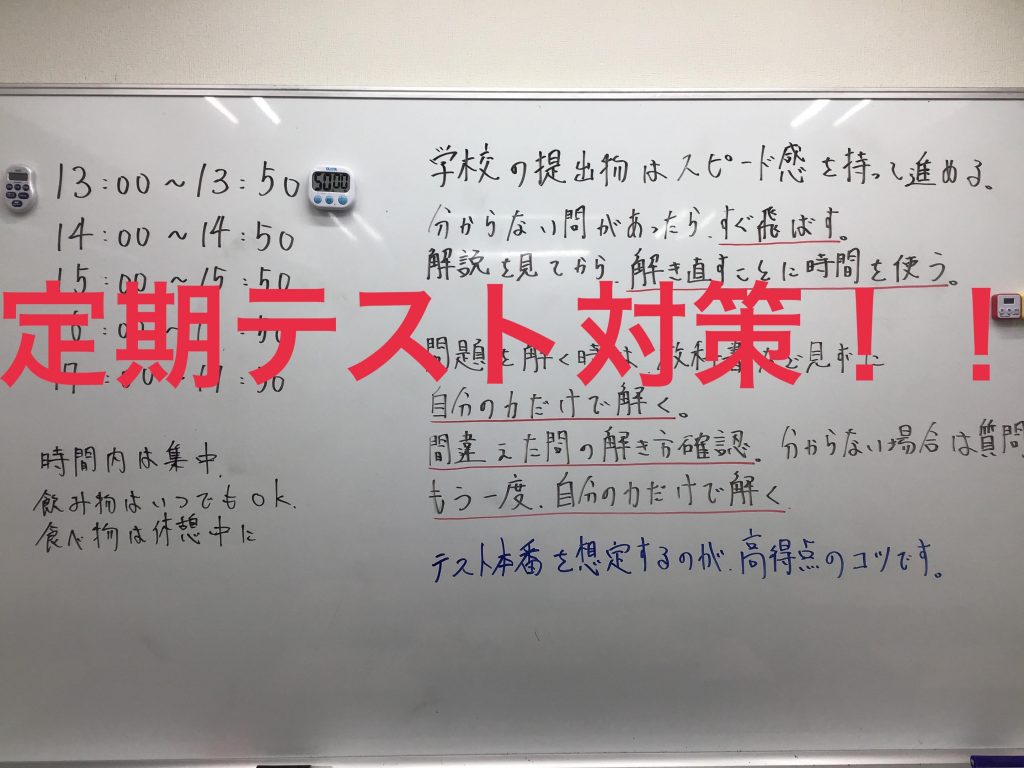 13:00～13:50
14:00～14:50
15:00～15:50
:00～1 :50
17:00～17:50
50:00
時間内は集中.
飲み物はいつでもok.
食べ物は休憩中に
学校の提出物はスピード感を持って進める。
分からない問があったら、すぐ飛ばす。
解説を見てから解き直すことに時間を使う。
定期テスト対策！！
問題を解く時は、教科書など見ずに
自分の力だけで解く。
間違えた問の解き方確認。分からない場合は質問
もう一度、自分の力だけで解く.
テスト本番を想定するのが、高得点のコツです。